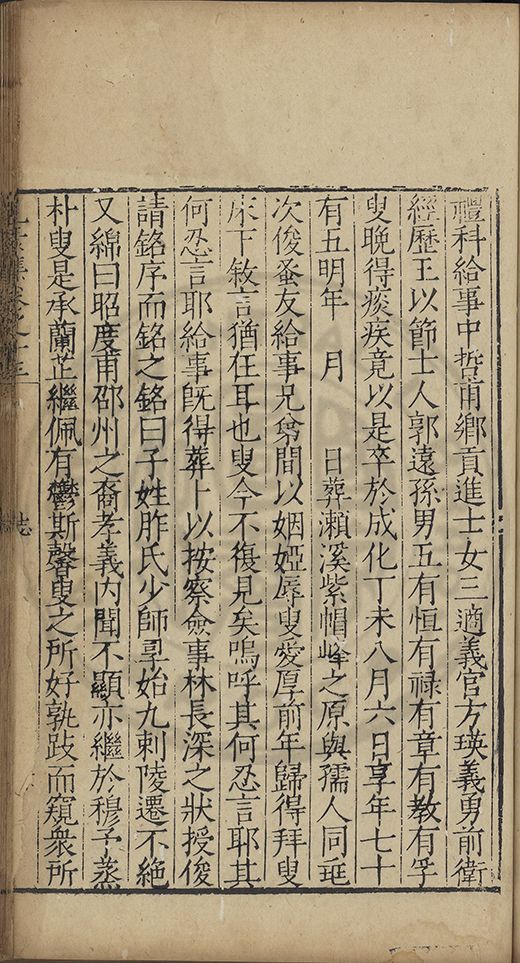 禮科給事中哲甫鄉貢進士女三適義官方瑛義男前衛
經歷王以節士人郭遠孫男五有恒有祿有章有教有孚
叟晚得痰疾竟以是卒於成化丁未八月六日享年七十
有五明年 月 日葬瀨溪紫帽峰之原與孺人同兆
次俊蚤友給事兄弟間以姻婭辱叟愛厚前年歸得拜叟
床下敘言猶在耳也叟今不復見矣嗚呼其何忍言耶其
何忍言耶給事既得葬卜以按察僉事林長深之狀授俊
請銘序而銘之銘曰子姓胙氏少師享始九刺陵遷不絕
又綿曰昭度甫邵州之裔孝義內聞不顯亦繼於穆予蒸
朴叟是承蘭芷繼佩有鬱斯馨叟之所好孰跂而窺衆所
志